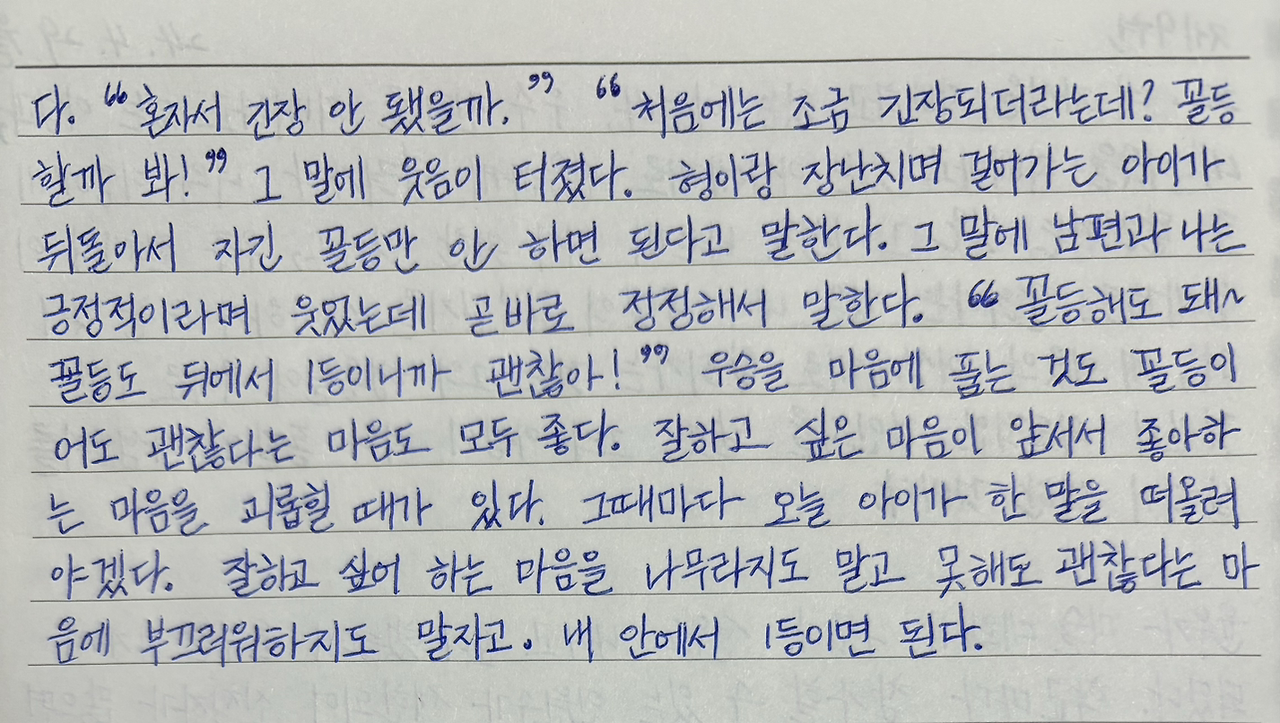 다. “혼자서 긴장 안 됐을까.” “처음에는 조금 긴장되더라는데? 꼴등
할까 봐!” 그 말에 웃음이 터졌다. 형이랑 장난치며 걸어가는 아이가
뒤돌아서 자긴 꼴등만 안 하면 된다고 말한다. 그 말에 남편과 나는
긍정적이라며 웃었는데 곧바로 정정해서 말한다. “꼴등해도 돼~
꼴등도 뒤에서 1등이니까 괜찮아!” 우승을 마음에 품는 것도 꼴등이
어도 괜찮다는 마음도 모두 좋다. 잘하고 싶은 마음이 앞서서 좋아하
는 마음을 괴롭힐 때가 있다. 그때마다 오늘 아이가 한 말을 떠올려
야겠다. 잘하고 싶어 하는 마음을 나무라지도 말고 못해도 괜찮다는 마
음에 부끄러워하지도 말자고. 내 안에서 1등이면 된다.